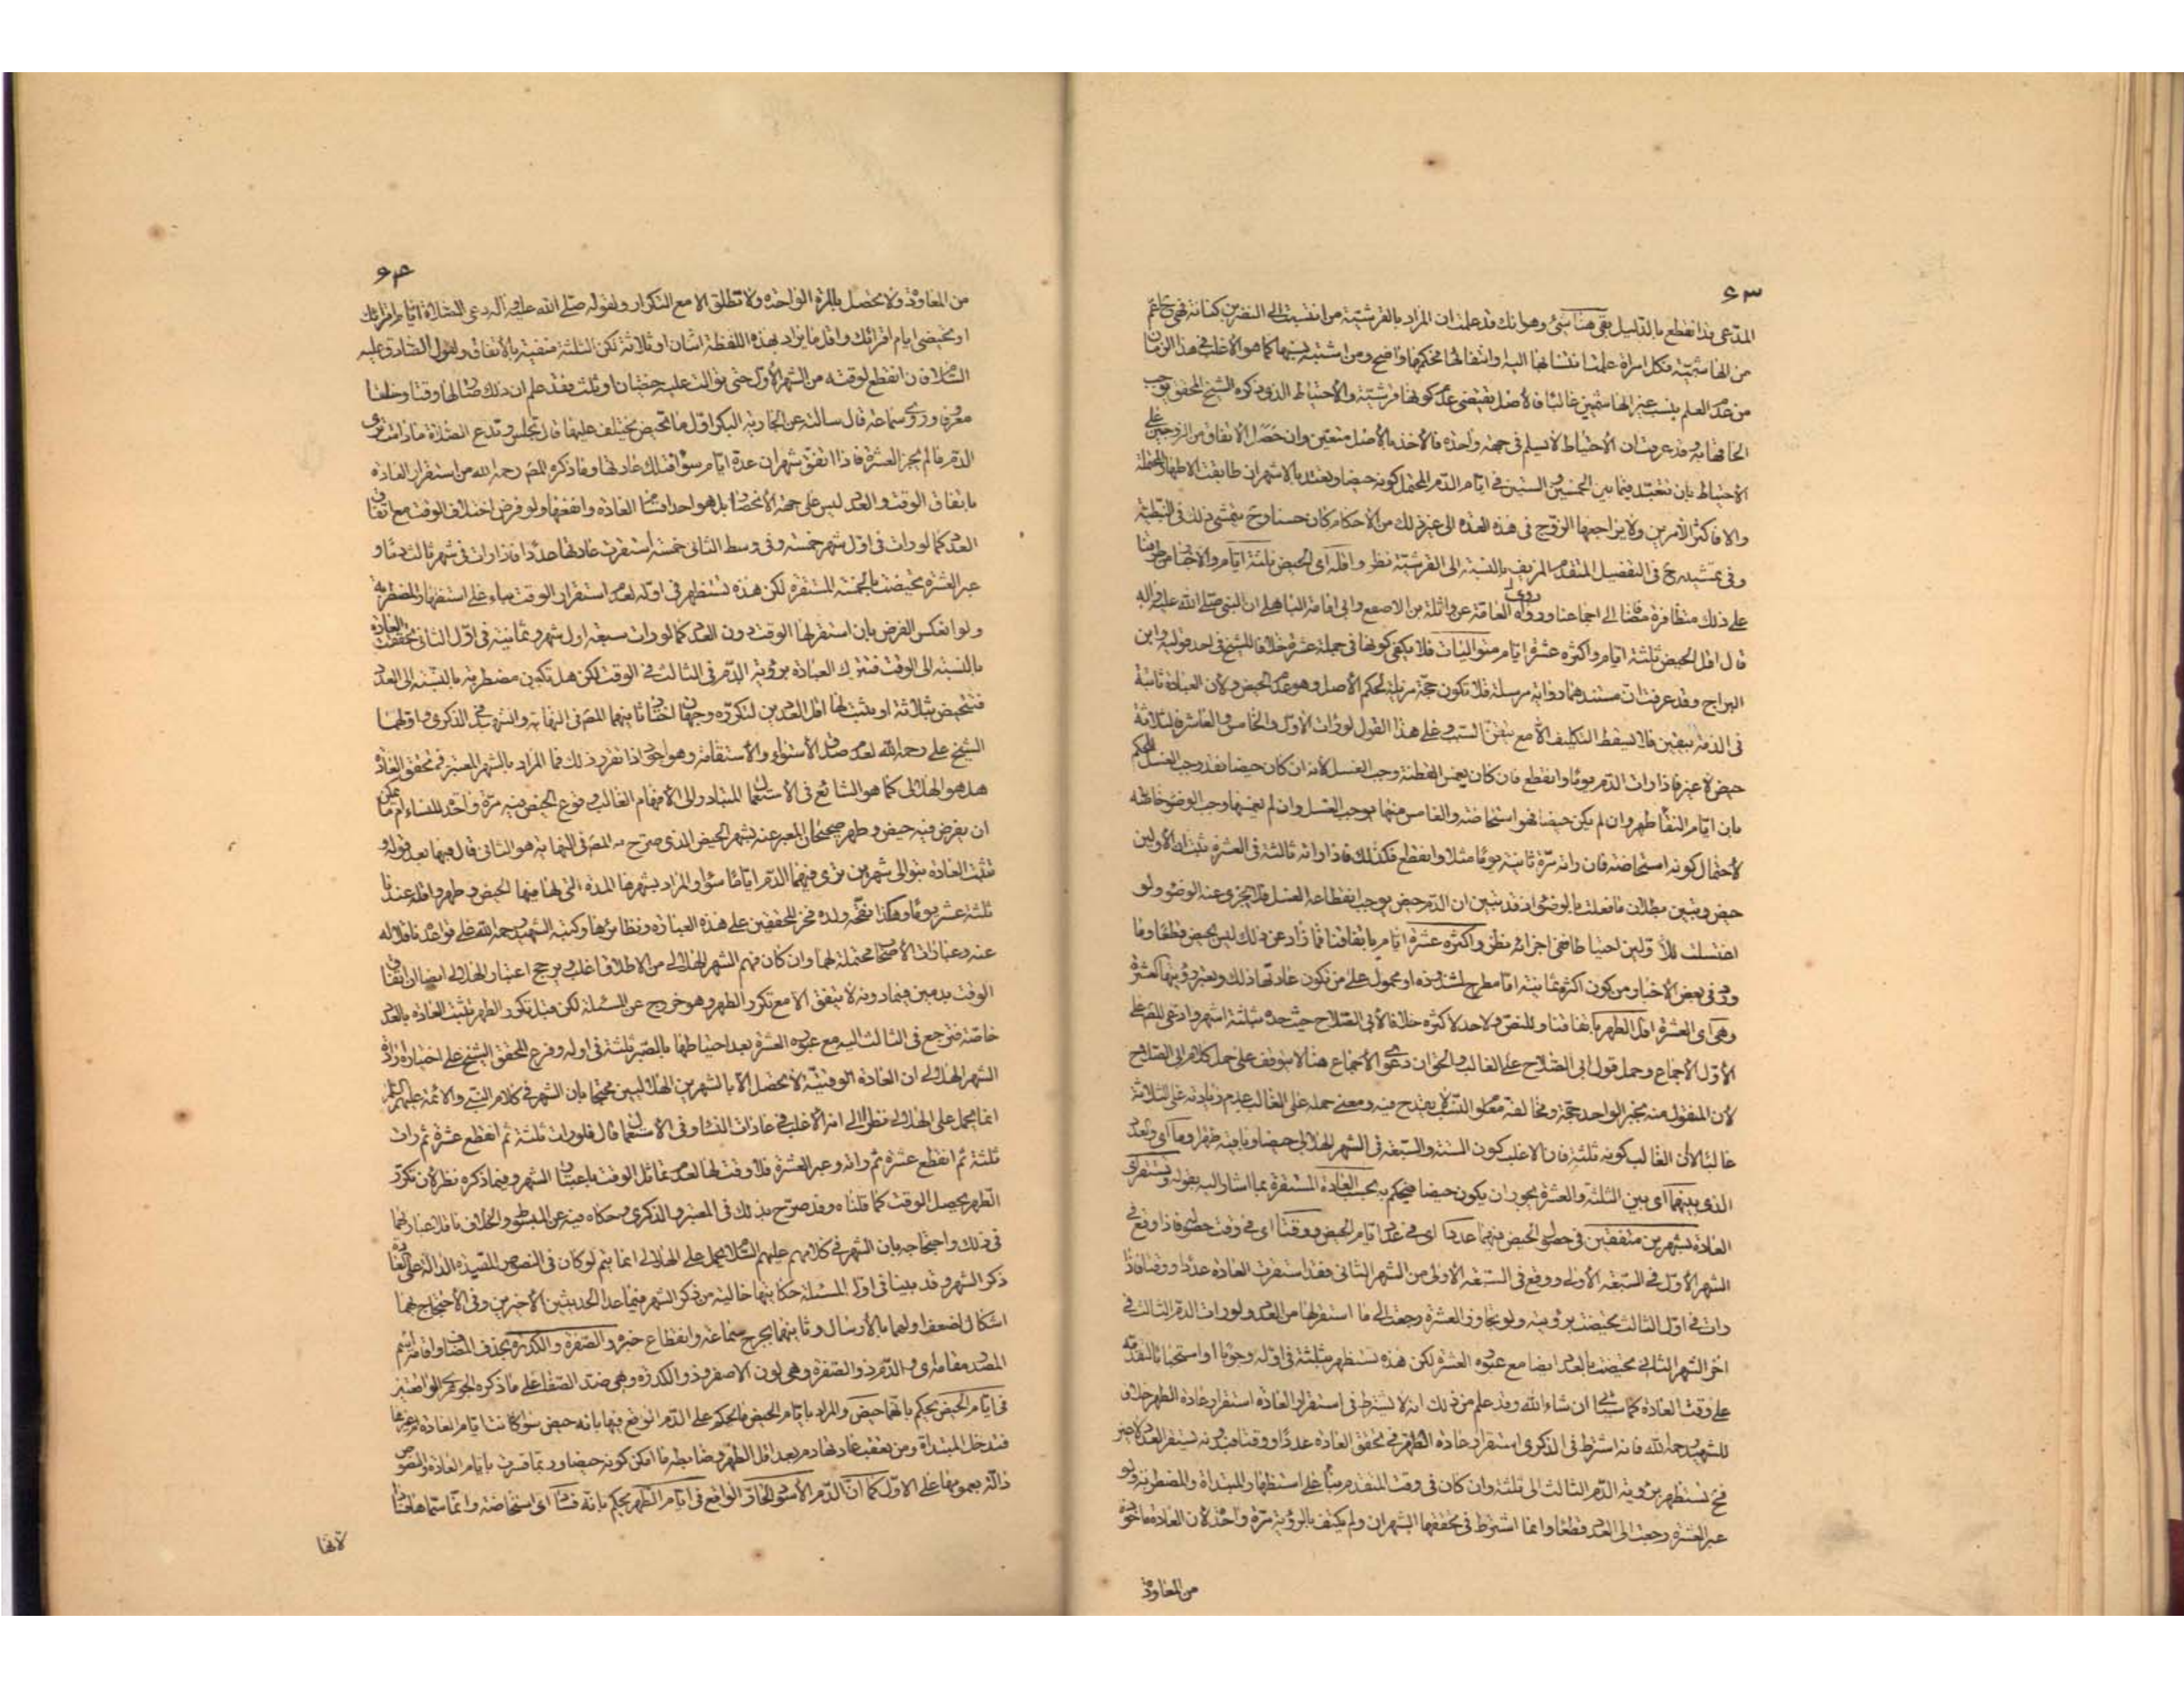 ٦٣
المدعى بذا نقطع بالدليل بقى هنا شئ وهو انك قد علمت ان المراد بالقرشية من انتسبت الى النضر بن كنانة فهى ح اعم
من الهاشمية فكل امراة علمت انتسابها اليه او انتفائها فحكمها واضح ومن اشتبه نسبها كما هو الاغلب فى هذا الزمان
من عدم العلم بنسب غير الهاشميين غالبا فالاصل يقتضى عدم كونها قرشية والاحتياط الذى ذكره الشيخ المحقق يوجب
الحاقها به وقد عرفت ان الاحتياط لا يسلم فى جهة واحدة فالاخذ بالاصل متعين وان حصل الاتفاق من الزوجين على
الاحتياط بان تتعبد فيما بين الخمسين والستين فى ايام الدم المحتمل كونه حيضا وتعتد بالاشهر ان طابقت الاطهار المحتملة
والا فاكثر الامرين ولا يراجعها الزوج فى هذه العدة الى غير ذلك من الاحكام كان حسنا وح يتمشى ذلك فى النبطية
وفى تمشيه ح فى التفصيل المتقدم المزيف بالنسبة الى القرشية نظر واقله اى الحيض ثلثة ايام والاخبار من طرقنا
على ذلك متظافرة مضافا الى اجماعنا وروى العامة عن واثلة بن الاصقع وابى امامة الباهلى ان النبى صلى الله عليه واله
قال اقل الحيض ثلثة ايام واكثره عشرة ايام متواليات فلا يكفى كونها فى جملة عشرة خلافا للشيخ فى احد قوليه وابن
البراج وقد عرفت ان مستندهما رواية مرسلة فلا تكون حجة مزيلة لحكم الاصل وهو عدم الحيض ولان العبادة ثابتة
فى الذمة بيقين فلا يسقط التكليف الا مع تيقن السبب وعلى هذا القول لو رات الاول والخامس والعاشر فالثلاثة
حيض لا غير فاذا رات الدم يوما وانقطع فان كان يغمس القطنة وجب الغسل لانه ان كان حيضا فقد وجب الغسل للحكم
بان ايام النقاء طهر وان لم يكن حيضا فهو استحاضة والغامس منها يوجب الغسل وان لم يغمسها وجب الوضوء خاصة
لاحتمال كونه استحاضة فان راته مرة ثانية يوما مثلا وانقطع فكذلك فاذا راته ثالثة فى العشرة تبين ان الاولين
حيض وتبين بطلان ما فعلت بالوضوء اذ قد تبين ان الدم حيض يوجب انقطاعه الغسل فلا يجزى عنه الوضوء ولو
اغتسلت للاولين احتياطا ففى اجزائه نظر واكثره عشرة ايام باتفاقنا فما زاد عن ذلك ليس بحيض قطعا وما
ورد فى بعض الاخبار من كون اكثره ثمانية اما مطرح لشذوذه او محمول على من تكون عادتها ذلك ويعبر دمها العشرة
وهى اى العشرة اقل الطهر باتفاقنا وللنص ولا حد لاكثره خلافا لابى الصلاح حيث حده بثلثة اشهر وادعى المص على
الاول الاجماع وحمل قول ابى الصلاح على الغالب والحق ان دعوى الاجماع هنا لا يتوقف على حمل كلام ابى الصلاح
لان المنقول منه بخبر الواحد حجة ومخالفة معلوم النسب لا يقدح فيه ومعنى حمله على الغالب عدم زيادته على الثلاثة
غالبا لا ان الغالب كونه ثلثة فان الاغلب كون الستة والسبعة فى الشهر الهلالى حيضا وباقيه طهرا وما اى والعدد
الذى بينهما اى بين الثلثة والعشرة يجوز ان يكون حيضا فيحكم به بحسب العادة المستقرة بما اشار اليه بقوله وتستقر اى
العادة بشهرين متفقين فى حصول الحيض فيهما عددا اى فى عدد ايام الحيض ووقتا اى فى وقت حصوله فاذا وقع فى
الشهر الاول فى السبعة الاولى ووقع فى السبعة الاولى من الشهر الثانى فقد استقرت العادة عددا ووقتا فاذا
رات فى اول الثالث تحيضت برؤيته ولو تجاوز العشرة رجعت الى ما استقر لها من العدد ولو رات الدم الثالث فى
اخر الشهر الثانى تحيضت بالعدد ايضا مع عبوره العشرة لكن هذه تستظهر بثلثة فى اوله وجوبا او استحبابا لتقدمه
على وقت العادة كما سياتى ان شاء الله وقد علم من ذلك انه لا يشترط فى استقرار العادة استقرار عادة الطهر خلافا
للشهيد رحمه الله فانه اشترط فى الذكرى استقرار عادة الطهر فى تحقق العادة عددا ووقتا فبدونه تستقر العدد لا غير
فح تستظهر برؤية الدم الثالث الى ثلثة وان كان فى وقت المتقدم بناء على استظهار المبتداة والمضطربة ولو
عبر العشرة رجعت الى العدد قطعا وانما اشترط فى تحققها الشهران ولم يكتف بالرؤية مرة واحدة لان العادة ماخوذة
من المعاودة
٦٤
من المعاودة ولا يحصل بالمرة الواحدة ولا تطلق الا مع التكرار ولقوله صلى الله عليه واله دعى الصلاة ايام اقرائك
او تحيضى ايام اقرائك واقل ما يراد بهذه اللفظة اثنان او ثلاثة لكن الثلثة منفية بالاتفاق ولقول الصادق عليه
السلام فان انقطع لوقته من الشهر الاول حتى توالت عليه حيضتان او ثلث فقد علم ان ذلك صار لها وقتا وخلقا
معروفا وروى سماعة قال سالته عن الجارية البكر اول ما تحيض يختلف عليها قال تجلس وتدع الصلاة ما دامت ترى
الدم ما لم يجز العشرة فاذا اتفق شهران عدة ايام سواء فتلك عادتها وما ذكره المص رحمه الله من استقرار العادة
باتفاق الوقت والعدد ليس على جهة الانحصار بل هو احد اقسام العادة وانفعها ولو فرض اختلاف الوقت مع اتفاق
العدد كما لو رات فى اول شهر خمسة وفى وسط الثانى خمسة استقرت عادتها عددا فاذا رات فى شهر ثالث دما و
عبر العشرة تحيضت بالخمسة المستقرة لكن هذه تستظهر فى اوله لعدم استقرار الوقت بناء على استظهار المضطربة
ولو انعكس الفرض بان استقر لها الوقت دون العدد كما لو رات سبعة اول شهر وثمانية فى اول الثانى تحققت العادة
بالنسبة الى الوقت فتترك العبادة برؤية الدم فى الثالث فى الوقت لكن هل تكون مضطربة بالنسبة الى العدد
فتتحيض بثلاثة او يثبت لها اقل العددين لتكرره وجهان اختار ثانيهما المص فى النهاية والشهيد فى الذكرى واولهما
الشيخ على رحمه الله لعدم صدق الاستواء والاستقامة وهو اجود اذا تقرر ذلك فما المراد بالشهر المعتبر فى تحقق العادة
هل هو الهلالى كما هو الشائع فى الاستعمال المتبادر الى الافهام الغالب وقوع الحيض فيه مرة واحدة للنساء ام ما يمكن
ان يفرض فيه حيض وطهر صحيحان المعبر عنه بشهر الحيض الذى صرح به المص فى النهاية هو الثانى قال فيها بعد قوله و
تثبت العادة بتوالى شهرين ترى فيهما الدم اياما سواء والمراد بشهرها المدة التى لها فيها الحيض وطهر واقله عندنا
ثلثة عشر يوما وهكذا نقحه ولده فخر المحققين على هذه العبارة ونظائرها وكتبه الشهيد رحمه الله على قواعده ناقلا له
عنه وعبارات الاصحاب محتملة لهما وان كان فهم الشهر الهلالى من الاطلاق اغلب ويرجح اعتبار الهلالى ايضا ان اتفاق
الوقت بدمين فيما دونه لا يتفق الا مع تكرر الطهر وهو خروج عن المسئلة لكن قبل تكرر الطهر تثبت العادة بالعدد
خاصة فترجع فى الثالث اليه مع عبوره العشرة بعد احتياطها بالصبر ثلثة فى اوله وفرع المحقق الشيخ على اختياره ارادة
الشهر الهلالى ان العادة الوقتية لا تحصل الا بالشهرين الهلاليين محتجا بان الشهر فى كلام النبى والائمة عليهم السلم
انما يحمل على الهلالى نظرا الى انه الاغلب فى عادات النساء وفى الاستعمال قال فلو رات ثلثة ثم انقطع عشرة ثم رات
ثلثة ثم انقطع عشرة ثم راته وعبر العشرة فلا وقت لها لعدم تماثل الوقت باعتبار الشهر وفيما ذكره نظر لان تكرر
الطهر يحصل الوقت كما قلناه وقد صرح بذلك فى المعتبر والذكرى وحكاه فيه عن المبسوط والخلاف ناقلا عبارتهما
فى ذلك واحتجاجه بان الشهر فى كلامهم عليهم السلام يحمل على الهلالى انما يتم لو كان فى النصوص المقيدة الدالة على العادة
ذكر الشهر وقد بينا فى اول المسئلة حكايتها خالية من ذكر الشهر فيما عدا الحديثين الاخيرين وفى الاحتجاج بهما
اشكال لضعف اولهما بالارسال وثانيهما بجرح سماعة وانقطاع خبره والصفرة والكدرة بحذف المضاف واقامة اسم
المصدر مقامه اى والدم ذو الصفرة وهى لون الاصفر وذو الكدرة وهى ضد الصفاء على ما ذكره الجوهرى الواقعتين
فى ايام الحيض يحكم بانهما حيض والمراد بايام الحيض ما يحكم على الدم الواقع فيها بانه حيض سواء كانت ايام العادة ام غيرها
فتدخل المبتداة ومن تعقب عادتها دم بعد اقل الطهر وضابطه ما امكن كونه حيضا وربما فسرت بايام العادة والنصوص
دالة بعمومها على الاول كما ان الدم الاسود الحار الواقع فى ايام الطهر يحكم بانه فساد اى استحاضة وانما سماها فسادا
لانها